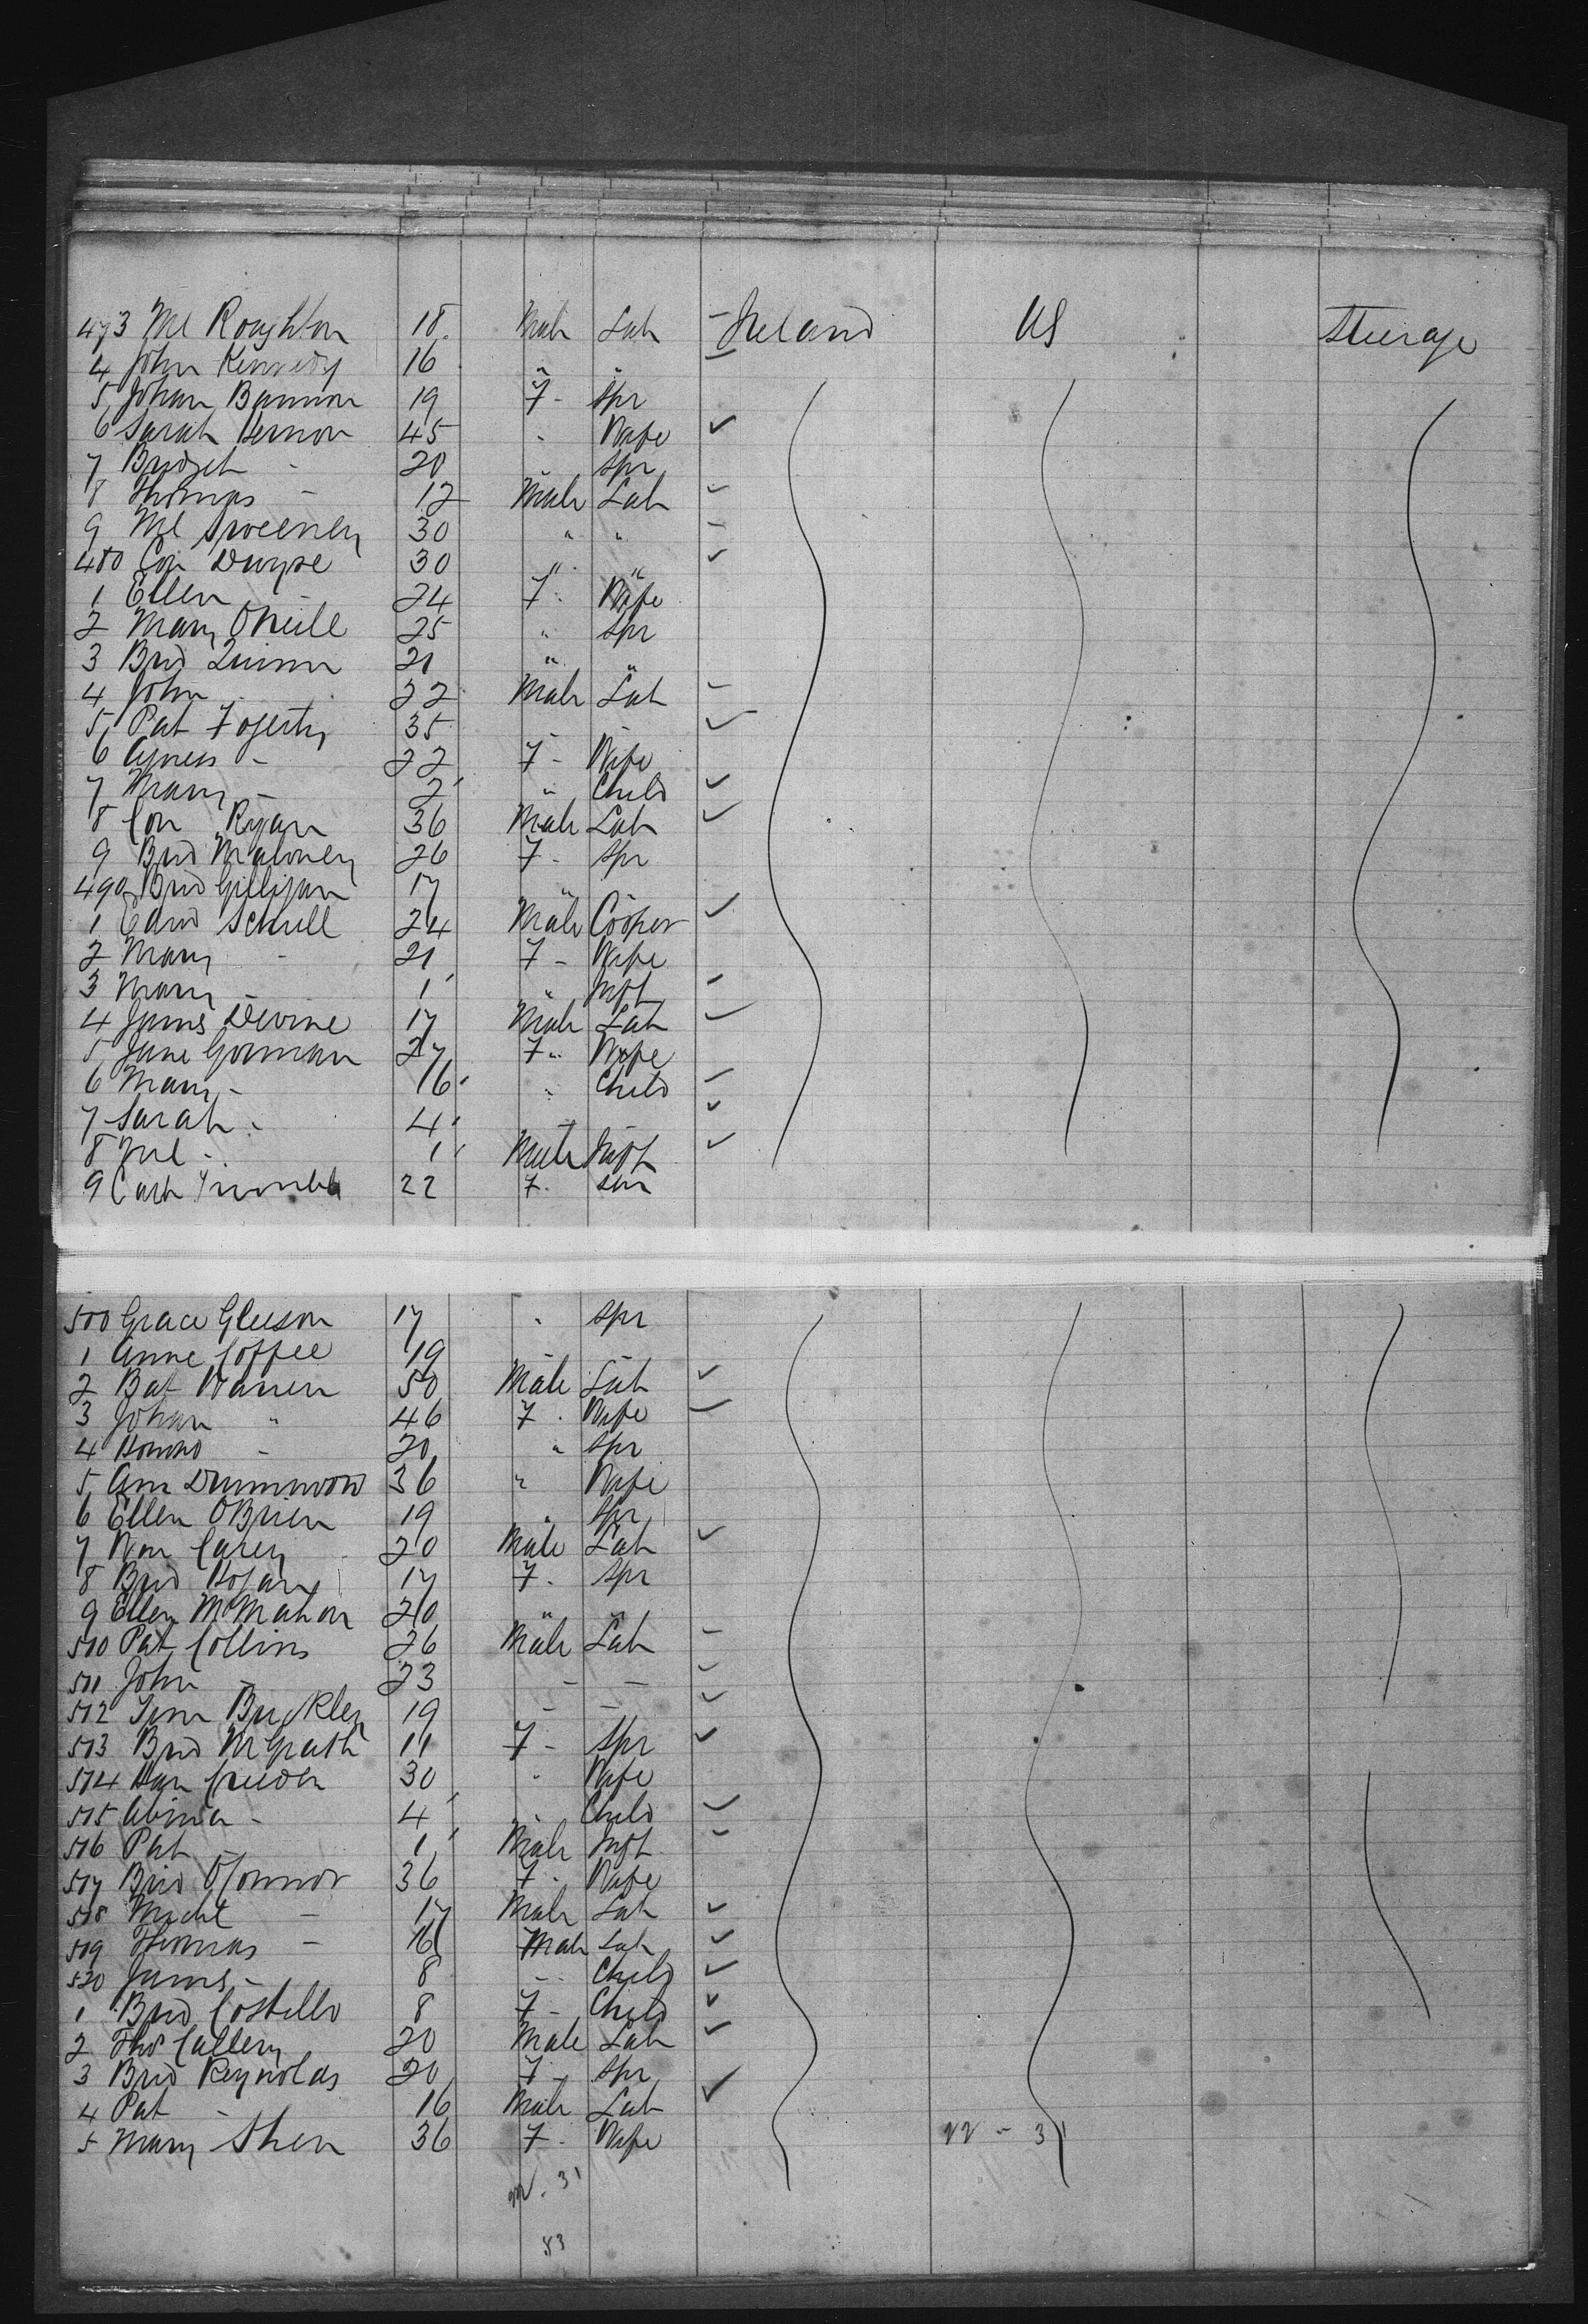 473 Ml Roughton 18. Male Lab - Ireland US Steerage
4 John Kennedy 16 " " -
5 Johan Bannon 19 F - Spr
6 Sarah Hernon 45 " Wife ✓
7 Bridget - 20 " Spr
8 Thomas - 12 Male Lab ✓
9 Ml Sweeney 30 " " -
480 Con Dwyre 30 " " ✓
1 Ellen - 24 F " Wife
2 Mary ONeill 25 " Spr
3 Brid Quinn 21 " "
4 John - 22 Male Lab -
5 Pat Fogerty 35 - - ✓
6 Agness - 22 F - Wife
7 Mary - 2 " Child ✓
8 Con Ryan 36 Male Lab ✓
9 Brid Maloney 26 F - Spr
490 Brid Gilligan 17 " "
1 Edwd Schull 24 Male Cooper ✓
2 Mary - 21 F - Wife
3 Mary - 1 " Inft -
4 James Devine 17 Male Lab ✓
5 Jane Gorman 27 F " Wife
6 Mary - 16 " Child ✓
7 Sarah - 4 - - ✓
8 Ml - 1 Male Inft ✓
9 Cath 22 F. Spr
500 Grace Gleeson 17 " Spr
1 Anne Coffee 19 - -
2 Bat Warren 50 Male Lab ✓
3 Johan " 46 F. Wife ✓
4 - 20 " Spr
5 Ann Drummond 36 " Wife
6 Ellen OBrien 19 " Spr
7 Wm Carey 20 Male Lab ✓
8 Brid Hogan 17 F. Spr
9 Ellen McMahon 20 " "
510 Pat Collins 26 Male Lab -
511 John - 23 - - ✓
512 Tim Buckley 19 - - ✓
513 Brid McGrath 11 F - Spr ✓
514 Han Creeden 30 " Wife
515 Abina - 4 " Child ✓
516 Pat - 1 Male Inft ✓
517 Brid OConnor 36 F. Wife
518 Michl - 17 Male Lab ✓
519 Thomas - 16 Male Lab ✓
520 James - 8 - Child ✓
1 Brid Costello 8 F - Child ✓
2 Thos Callery 20 Male Lab ✓
3 Brid Reynolds 20 F - Spr
4 Pat - 16 Male Lab ✓
5 Mary Shea 36 F - Wife 22 - 31
22. 31
53